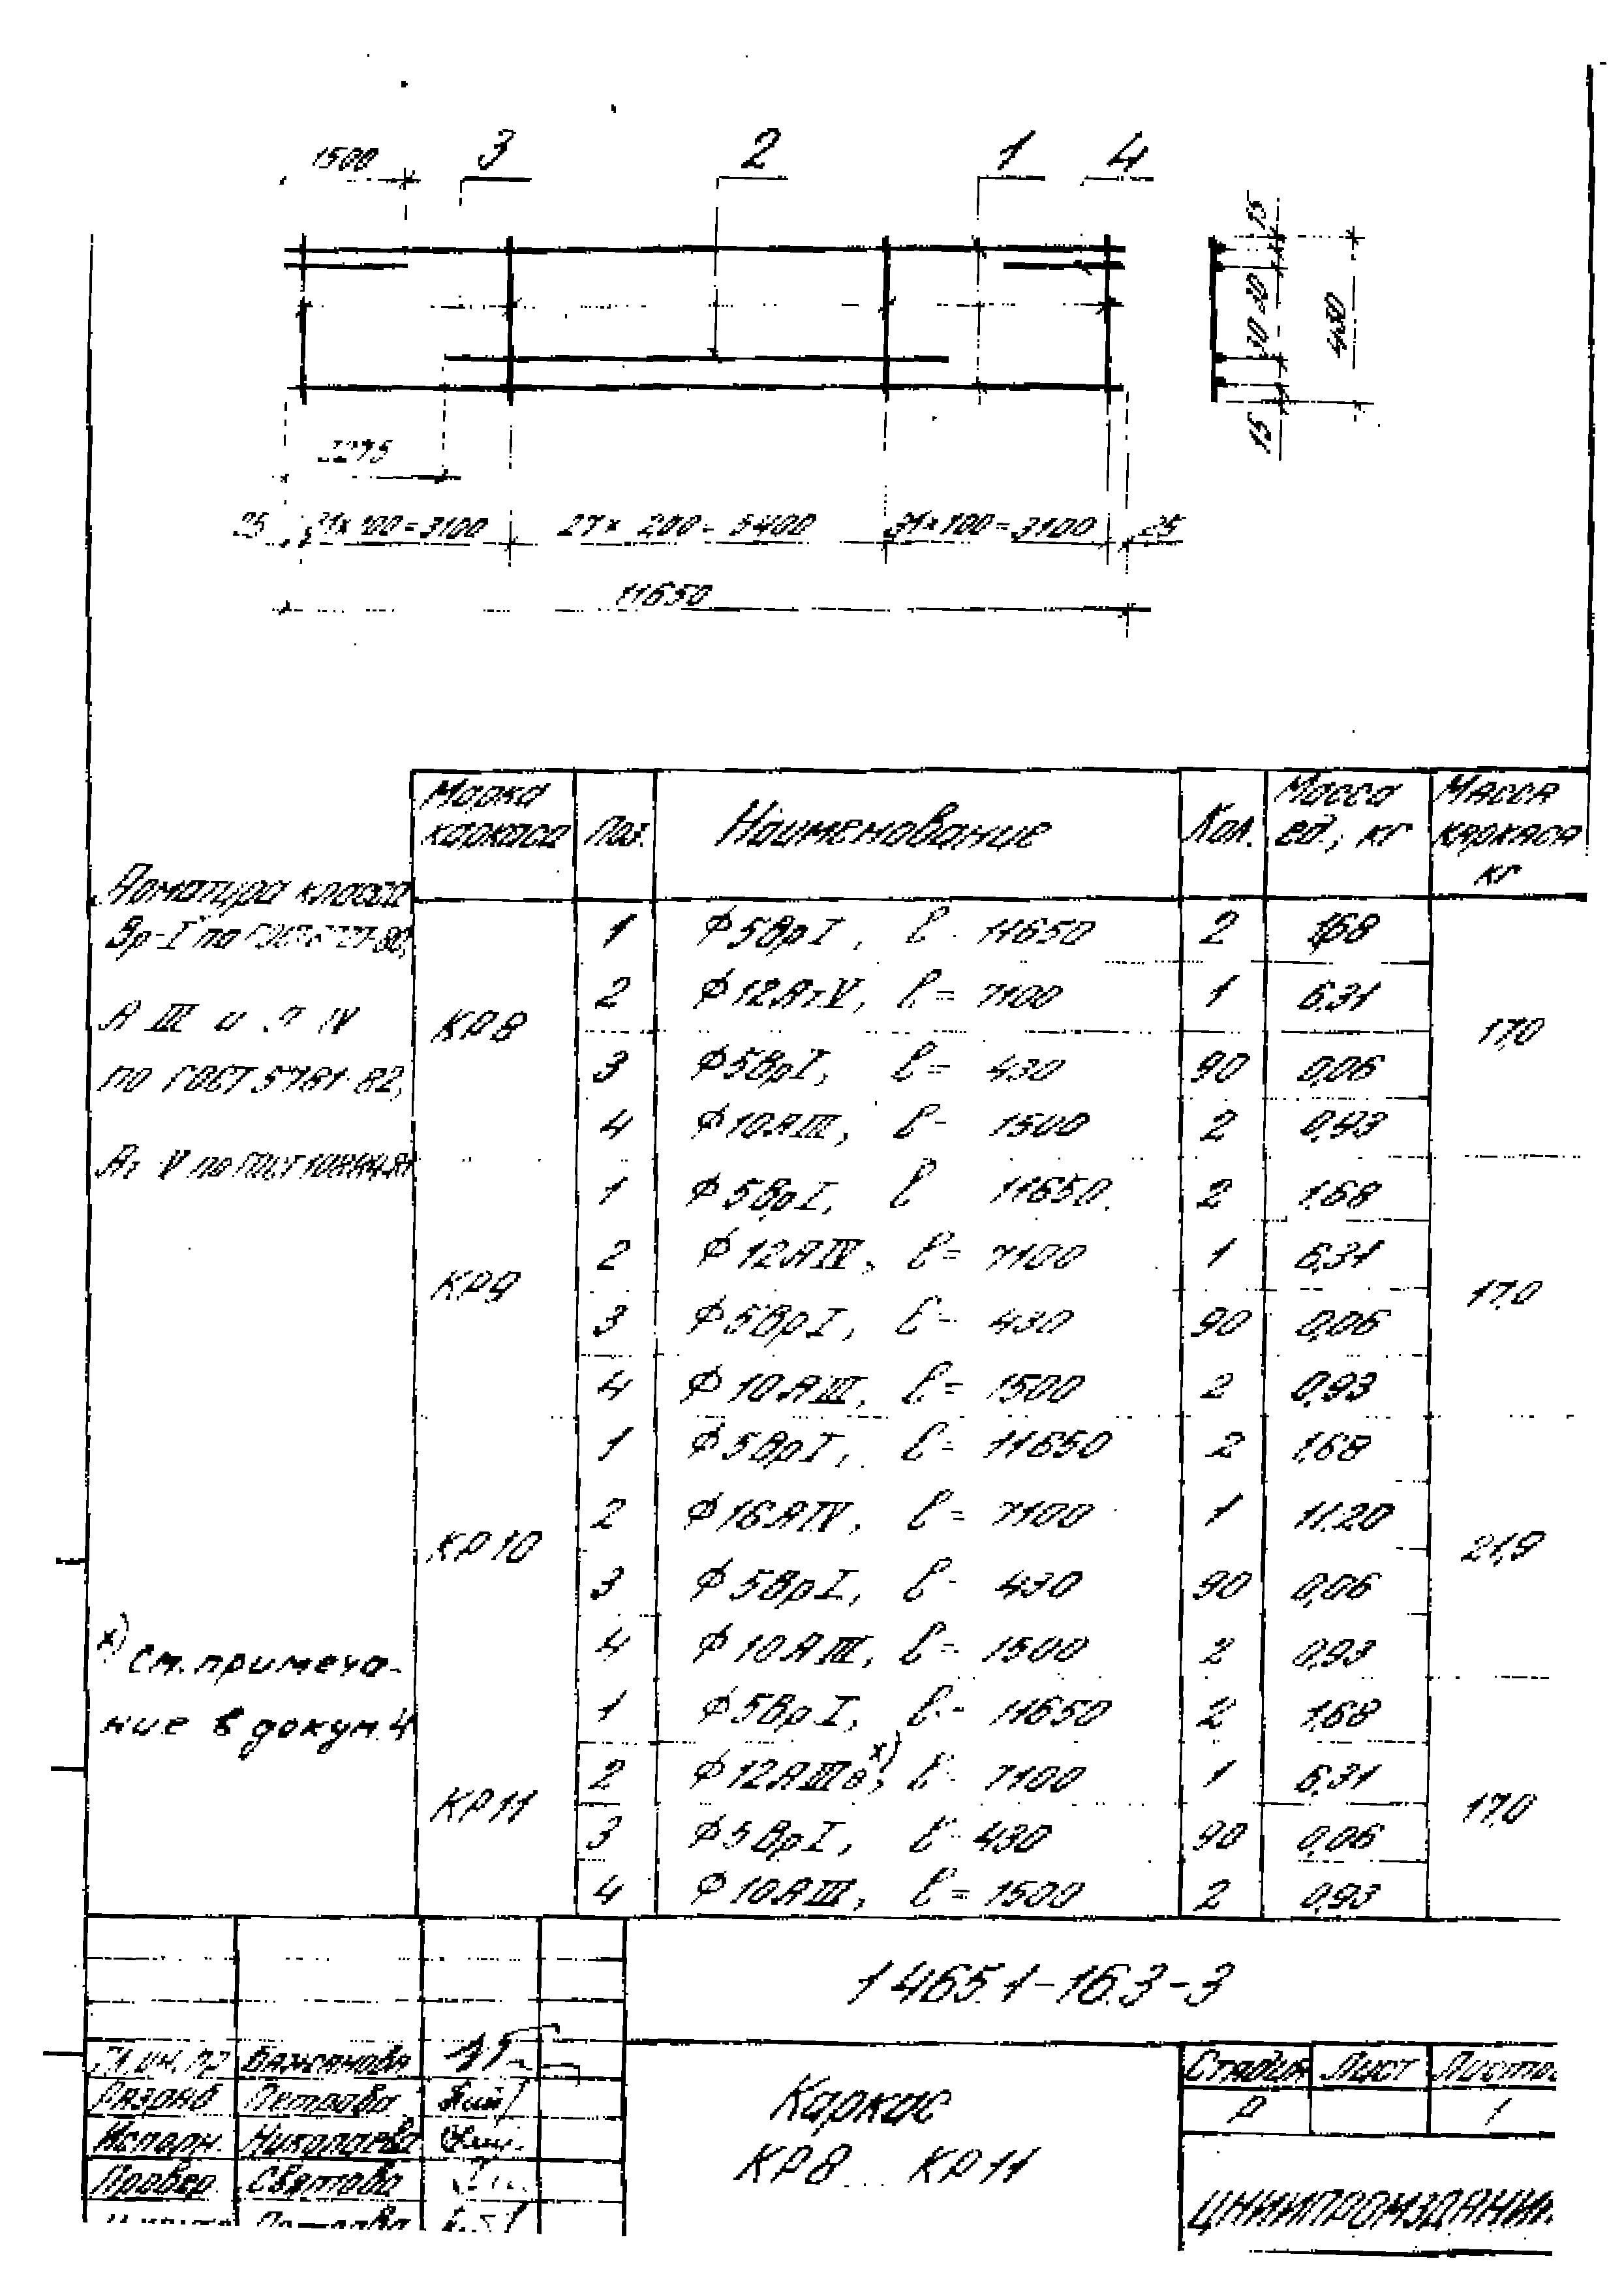 1500 3 2 1 4
15
30
30
430
15
2275
25 31×100=3100 27× 200= 5400 31×100=3100 25
11650
Марка каркаса Поз. Наименование Кол. Масса ед., кг Масса каркаса кг
Арматура класса
Вр-I по ГОСТ 6727-80,
А III и А IV
по ГОСТ 5781-82,
Ат V по ГОСТ 10884-81
КР8 17,0
1 Ф5ВрI, ℓ= 11650 2 1,68
2 Ф12Ат.V, ℓ= 7100 1 6,31
3 Ф5ВрI, ℓ= 430 90 0,06
4 Ф10АIII, ℓ= 1500 2 0,93
КР9 17,0
1 Ф5ВрI, ℓ 11650. 2 1,68
2 Ф12АIV, ℓ= 7100 1 6,31
3 Ф5ВрI, ℓ= 430 90 0,06
4 Ф10АIII, ℓ= 1500 2 0,93
КР10 21,9
1 Ф5ВрI, ℓ= 11650 2 1,68
2 Ф16АIV, ℓ= 7100 1 11,20
3 Ф5ВрI, ℓ= 430 90 0,06
4 Ф10АIII, ℓ= 1500 2 0,93
КР11 17,0
1 Ф5ВрI, ℓ= 11650 2 1,68
2 Ф12АIIIв x), ℓ= 7100 1 6,31
3 Ф5ВрI, ℓ= 430 90 0,06
4 Ф10АIII, ℓ= 1500 2 0,93
x) См. примеча-
ние в докум. 4
1 465.1-16.3-3
Гл. ин. пр Бажанова
Разраб Петрова
Исполн. Николаева
Провер. Святова
Каркас
КР8 ... КР11
Стадия Лист Листов
Р 1
ЦНИИПРОМЗДАНИЙ